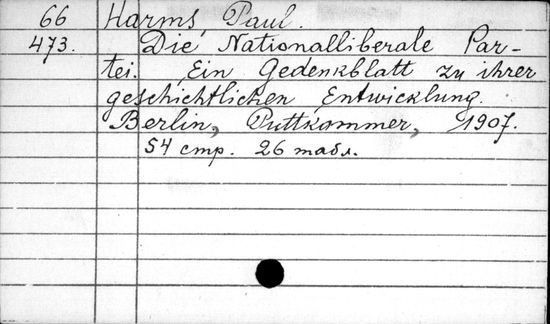 66 Harms, Paul.
473. Die Nationalliberale Par-
tei. Ein Gedenkblatt zu ihrer
geschichtlichen Entwicklung.
Berlin, Puttkammer, 1907.
54 стр. 26 табл.